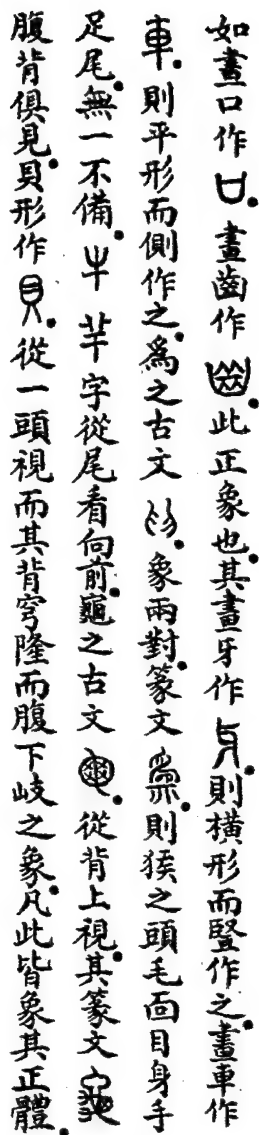 如畫口作口。畫齒作齒。此正象也。其畫牙作牙。則橫形而竪作之。畫車作
車。則平形而側作之。爲之古文爲。象兩對。篆文爲。則猴之頭毛面目身手
足尾。無一不備。牛羊字從尾看向前。龜之古文龜。從背上視。其篆文龜
腹背俱見。貝形作貝。從一頭視而其背穹隆而腹下岐之象。凡此皆象其正體。